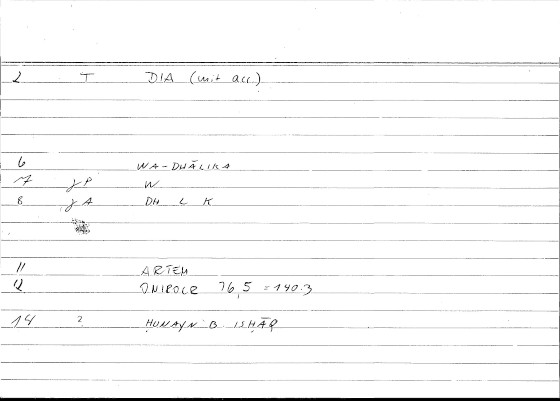 2 T DIA (mit acc)
6 WA-DHĀLIKA
7 γP W
8 γA DH L K
11 ARTEM
12 ONIROCR 76,5 = 140.3
14 2 ḤUNAYN B. ISḤĀQ